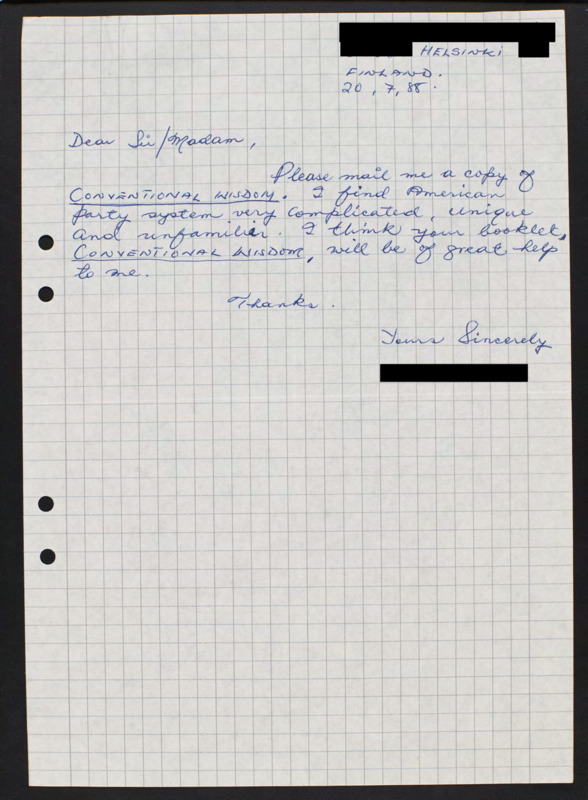 HELSINKI
FINLAND.
20, 7, 88.
Dear Sir/Madam,
Please mail me a copy of
CONVENTIONAL WISDOM. I find American
party system very complicated, unique
and unfamiliar. I think your booklet,
CONVENTIONAL WISDOM, will be of great help
to me.
Thanks.
Yours Sincerely